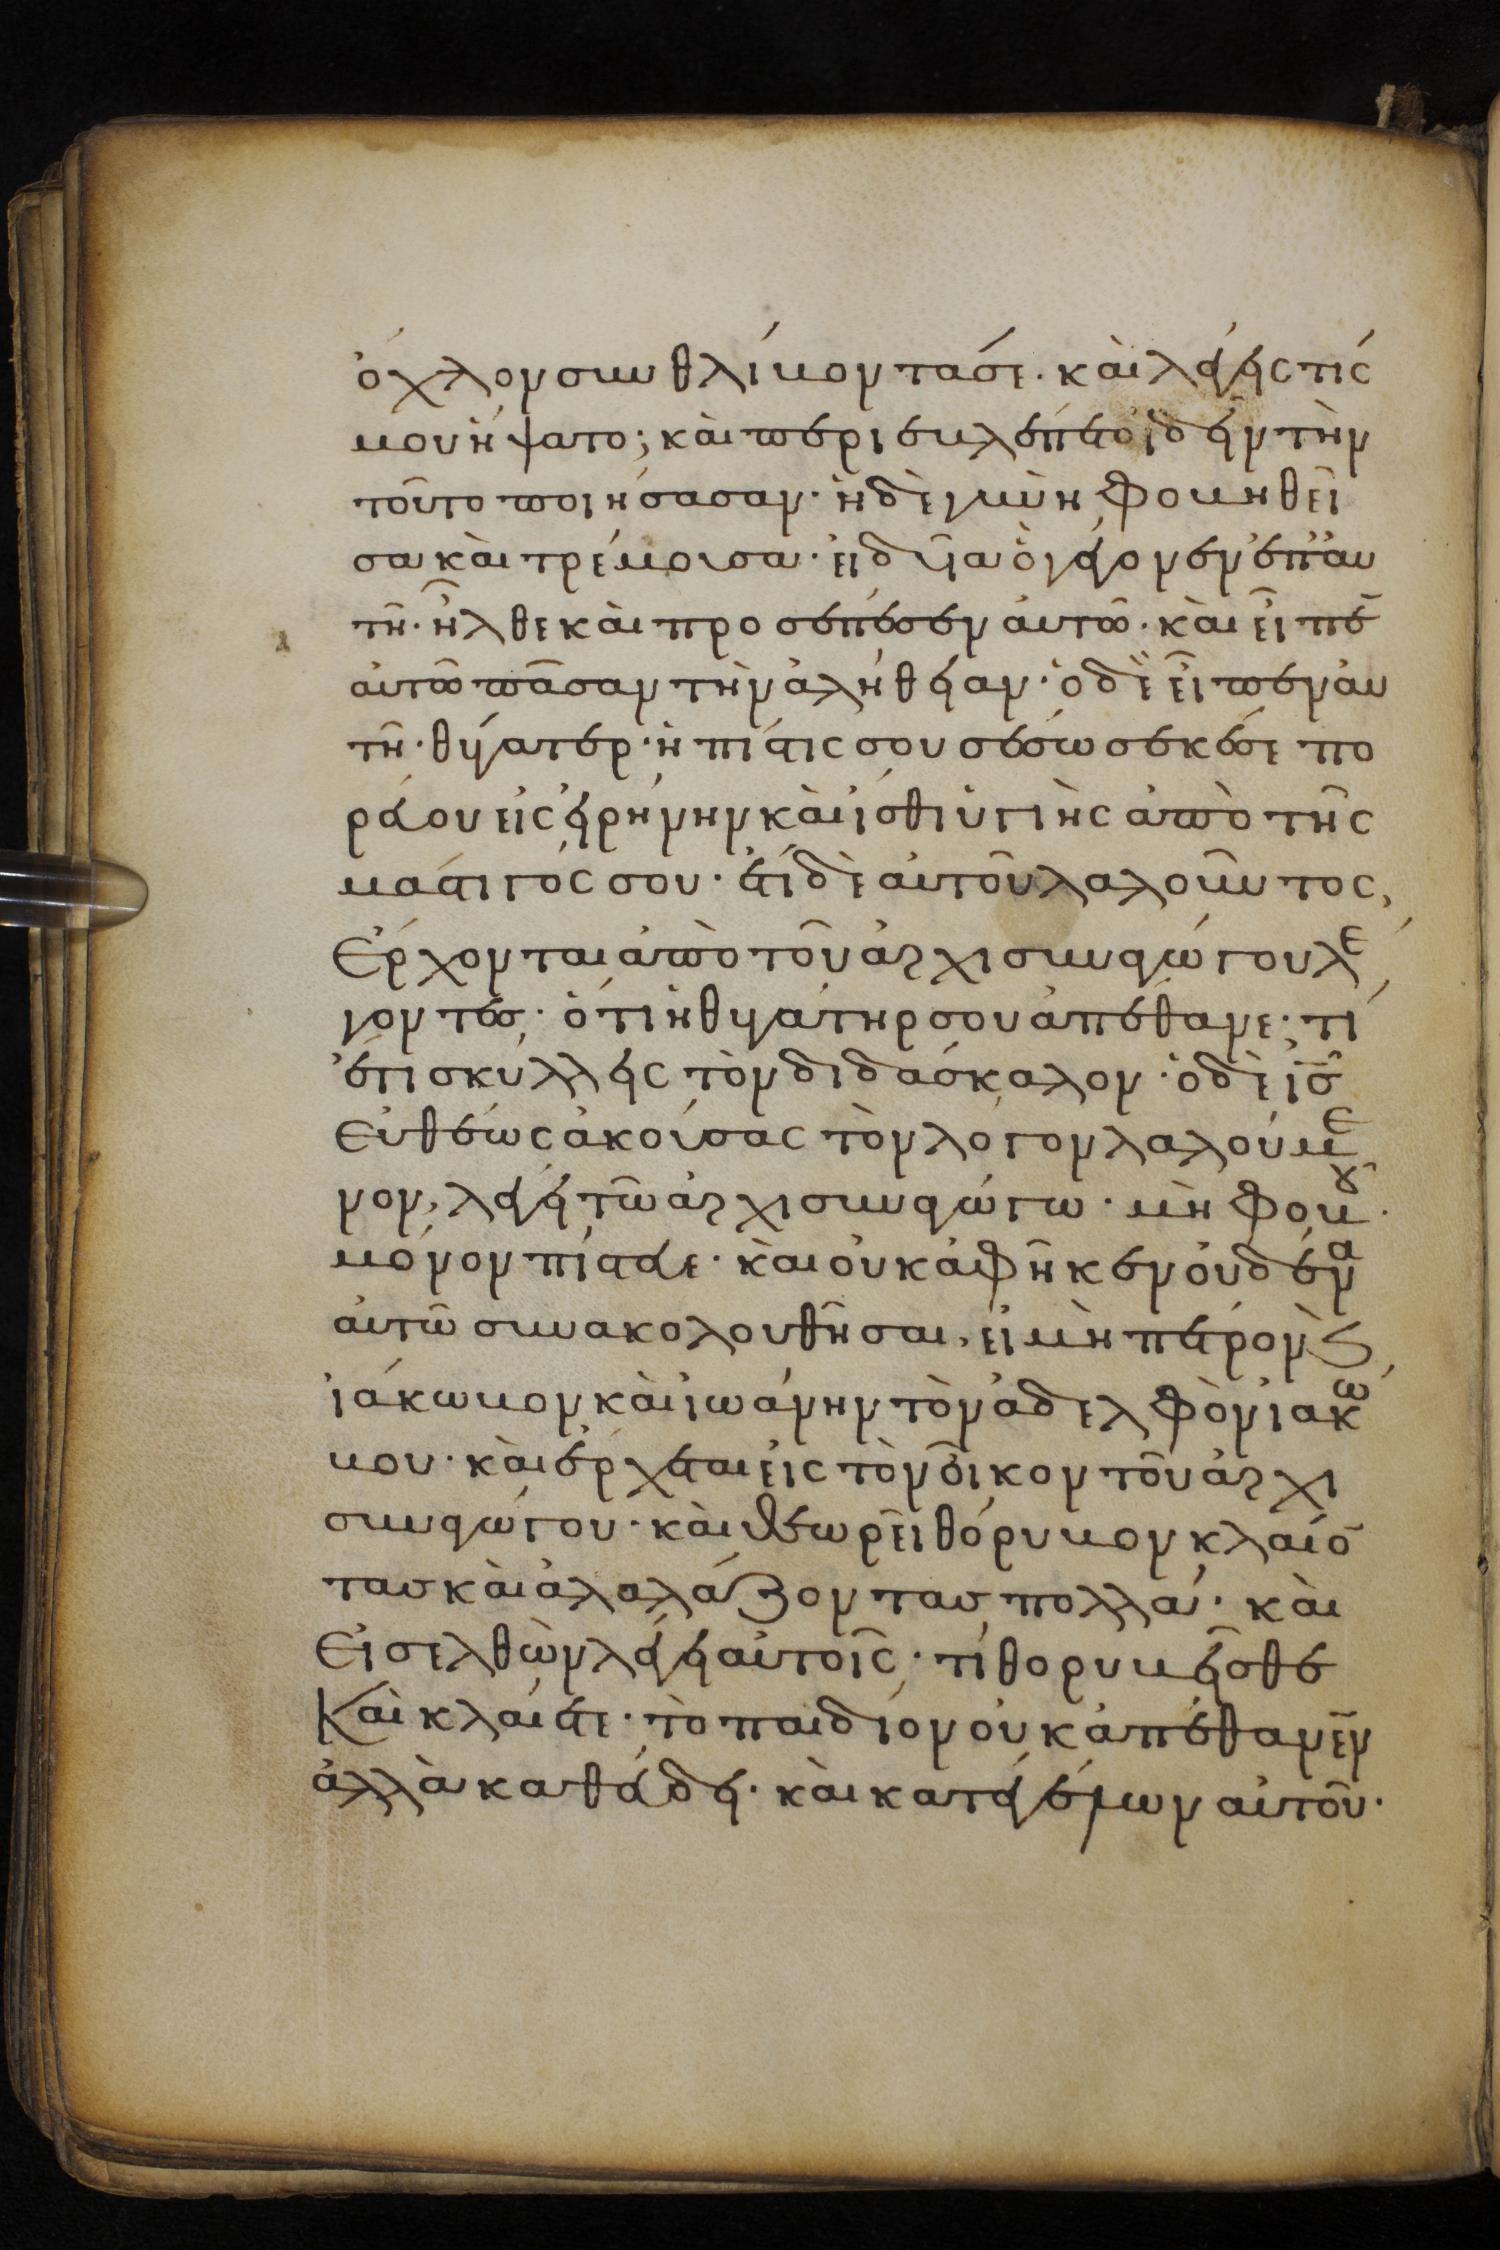 ὄχλον συνθλίβοντά σε· καὶ λέγεις τίς
μου ἥψατο; καὶ περιεβλέπετο ἰδεῖν τὴν
τοῦτο ποιήσασαν· ἡ δὲ γυνὴ φοβηθεῖ
σα καὶ τρέμουσα· εἰδυῖα ὃ γέγονεν ἐπ' αυ
τῆ· ἦλθε καὶ προσέπεσεν αὐτῶ· καὶ εἶπε̄
αὐτῶ πᾶσαν τὴν ἀλήθειαν· ὁ δὲ εἶπεν αὐ
τῆ· θύγατερ· ἡ πίστις σου σέσωσέκέ σε πο
ρεύου εἰς εἰρήνην καὶ ἴσθι ὑγιὴς ἀπὸ τῆς
μάστιγός σου· ἔτι δὲ αὐτοῦ λαλοῦντος,
Ἔρχονται ἀπὸ τοῦ ἀρχισυναγώγου λέ
γοντες· ὅτι ἡ θυγάτηρ σου ἀπέθανε· τί
ἔτι σκύλλεις τὸν διδάσκαλον· ὁ δὲ ἰ̅ς̅
Εὐθέως ἀκούσας τὸν λόγον λαλούμε
νον, λέγει τῶ ἀρχισυναγώγω· μὴ φοβοῦ·
μόνον πίστευε· καὶ οὐκ ἀφῆκεν οὐδένα
αὐτῶ συνακολουθῆσαι, εἰ μὴ πέτρον ϗ
ἰάκωβον καὶ ἰωάνην τὸν ἀδελφὸν ἰακώ
βου· καὶ ἔρχεται εἰς τὸν οἶκον τοῦ ἀρχι
συναγώγου· καὶ θεωρεῖ θόρυβον κλαίο̄
τας καὶ ἀλαλάζοντας πολλά· καὶ
Εἰσελθὼν λέγει αὐτοῖς· τί θορυβεῖσθε
Καὶ κλαίετε· τὸ παιδίον οὐκ ἀπέθανεν
ἀλλὰ καθεύδει· καὶ κατεγέλων αὐτοῦ·